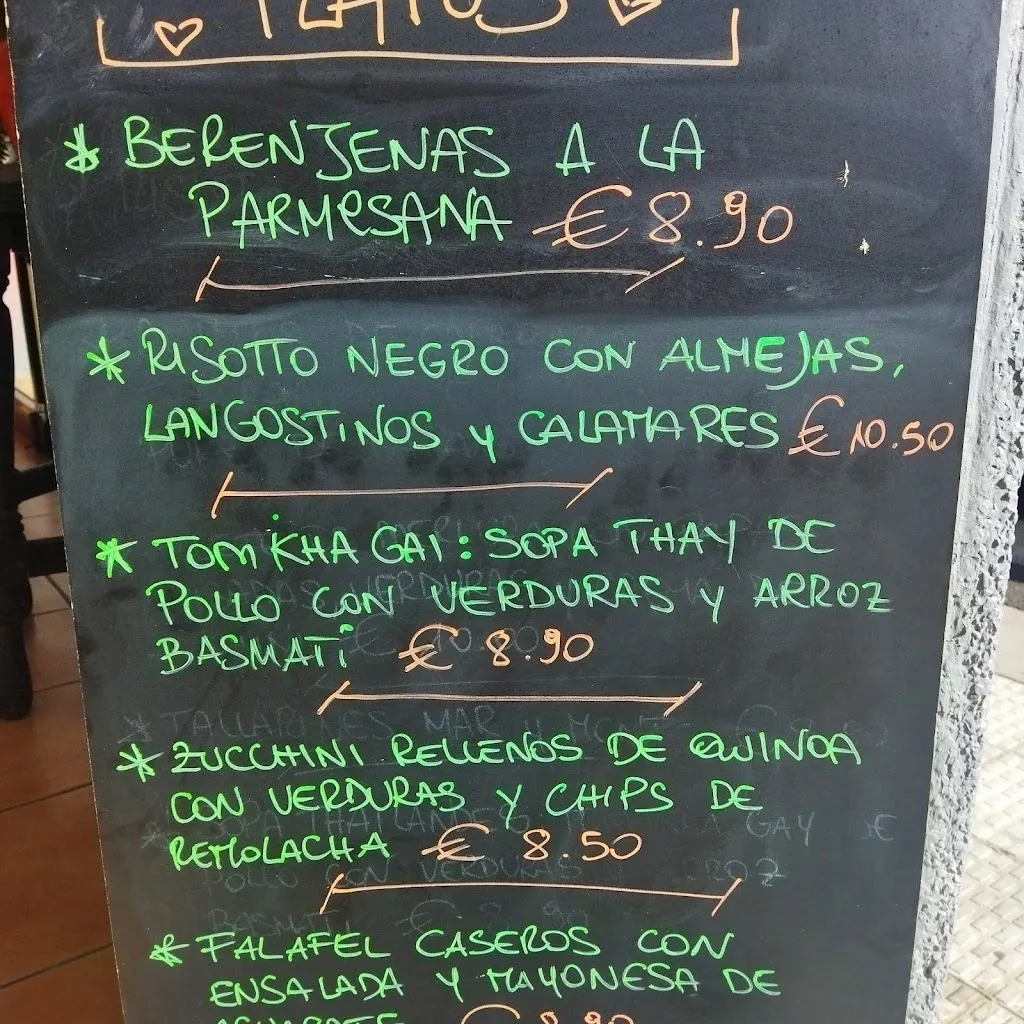 PLATOS
* BERENJENAS A LA
PARMESANA € 8.90
* RISOTTO NEGRO CON ALMEJAS,
LANGOSTINOS y CALAMARES € 10.50
* TOM KHA GAI: SOPA THAY DE
POLLO CON VERDURAS y ARROZ
BASMATI € 8.90
* ZUCCHINI RELLENOS DE QUINOA
CON VERDURAS Y CHIPS DE
REMOLACHA € 8.50
* FALAFEL CASEROS CON
ENSALADA Y MAYONESA DE
AGUACATE € 8.90